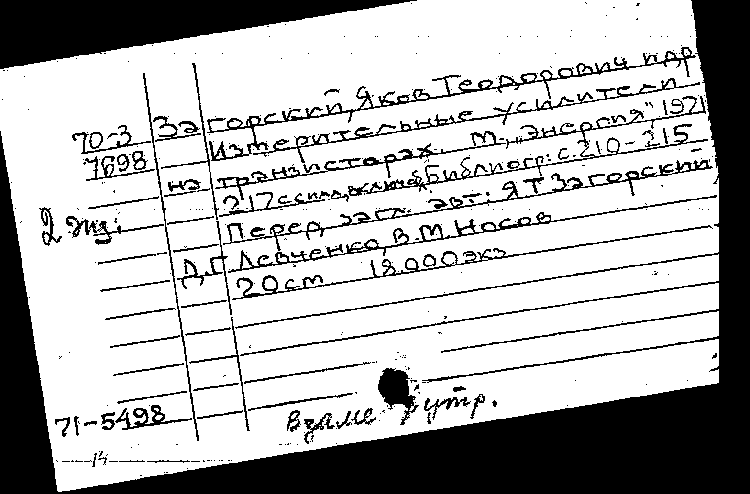 70-3 Загорский, Яков Теодорович и др
7698 Измерительные усилители
на транзисторах. М., "Энергия", 1971
217 с с илл, включ. Библиогр: с. 210-215
2 экз. Перед загл. авт: Я Т Загорский,
Д. Г Левченко, В. М. Носов
20 cm 18.000 экз
71-5498
взаме утр.
14